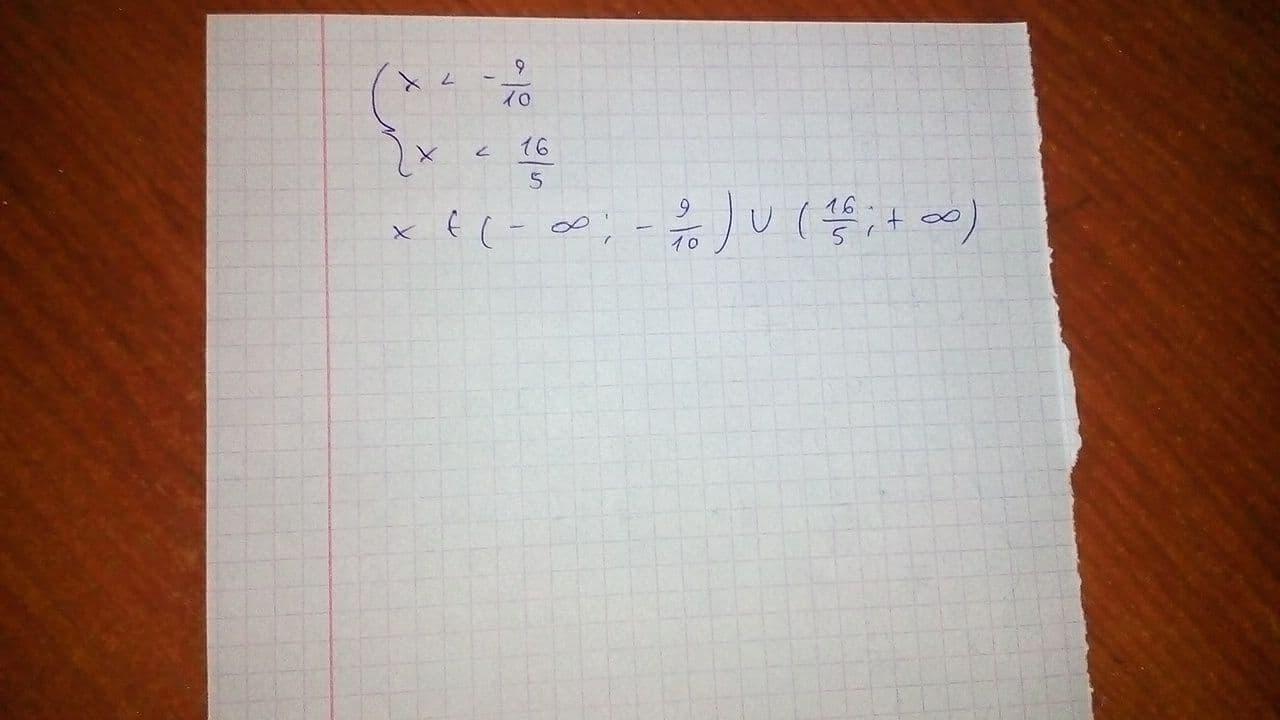 { x < - 9/10
x < 16/5
x ∈ (- ∞; - 9/10) ∪ (16/5; + ∞)